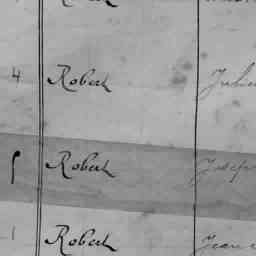 4 Robert Julie
5 Robert Joseph
1 Robert Jean